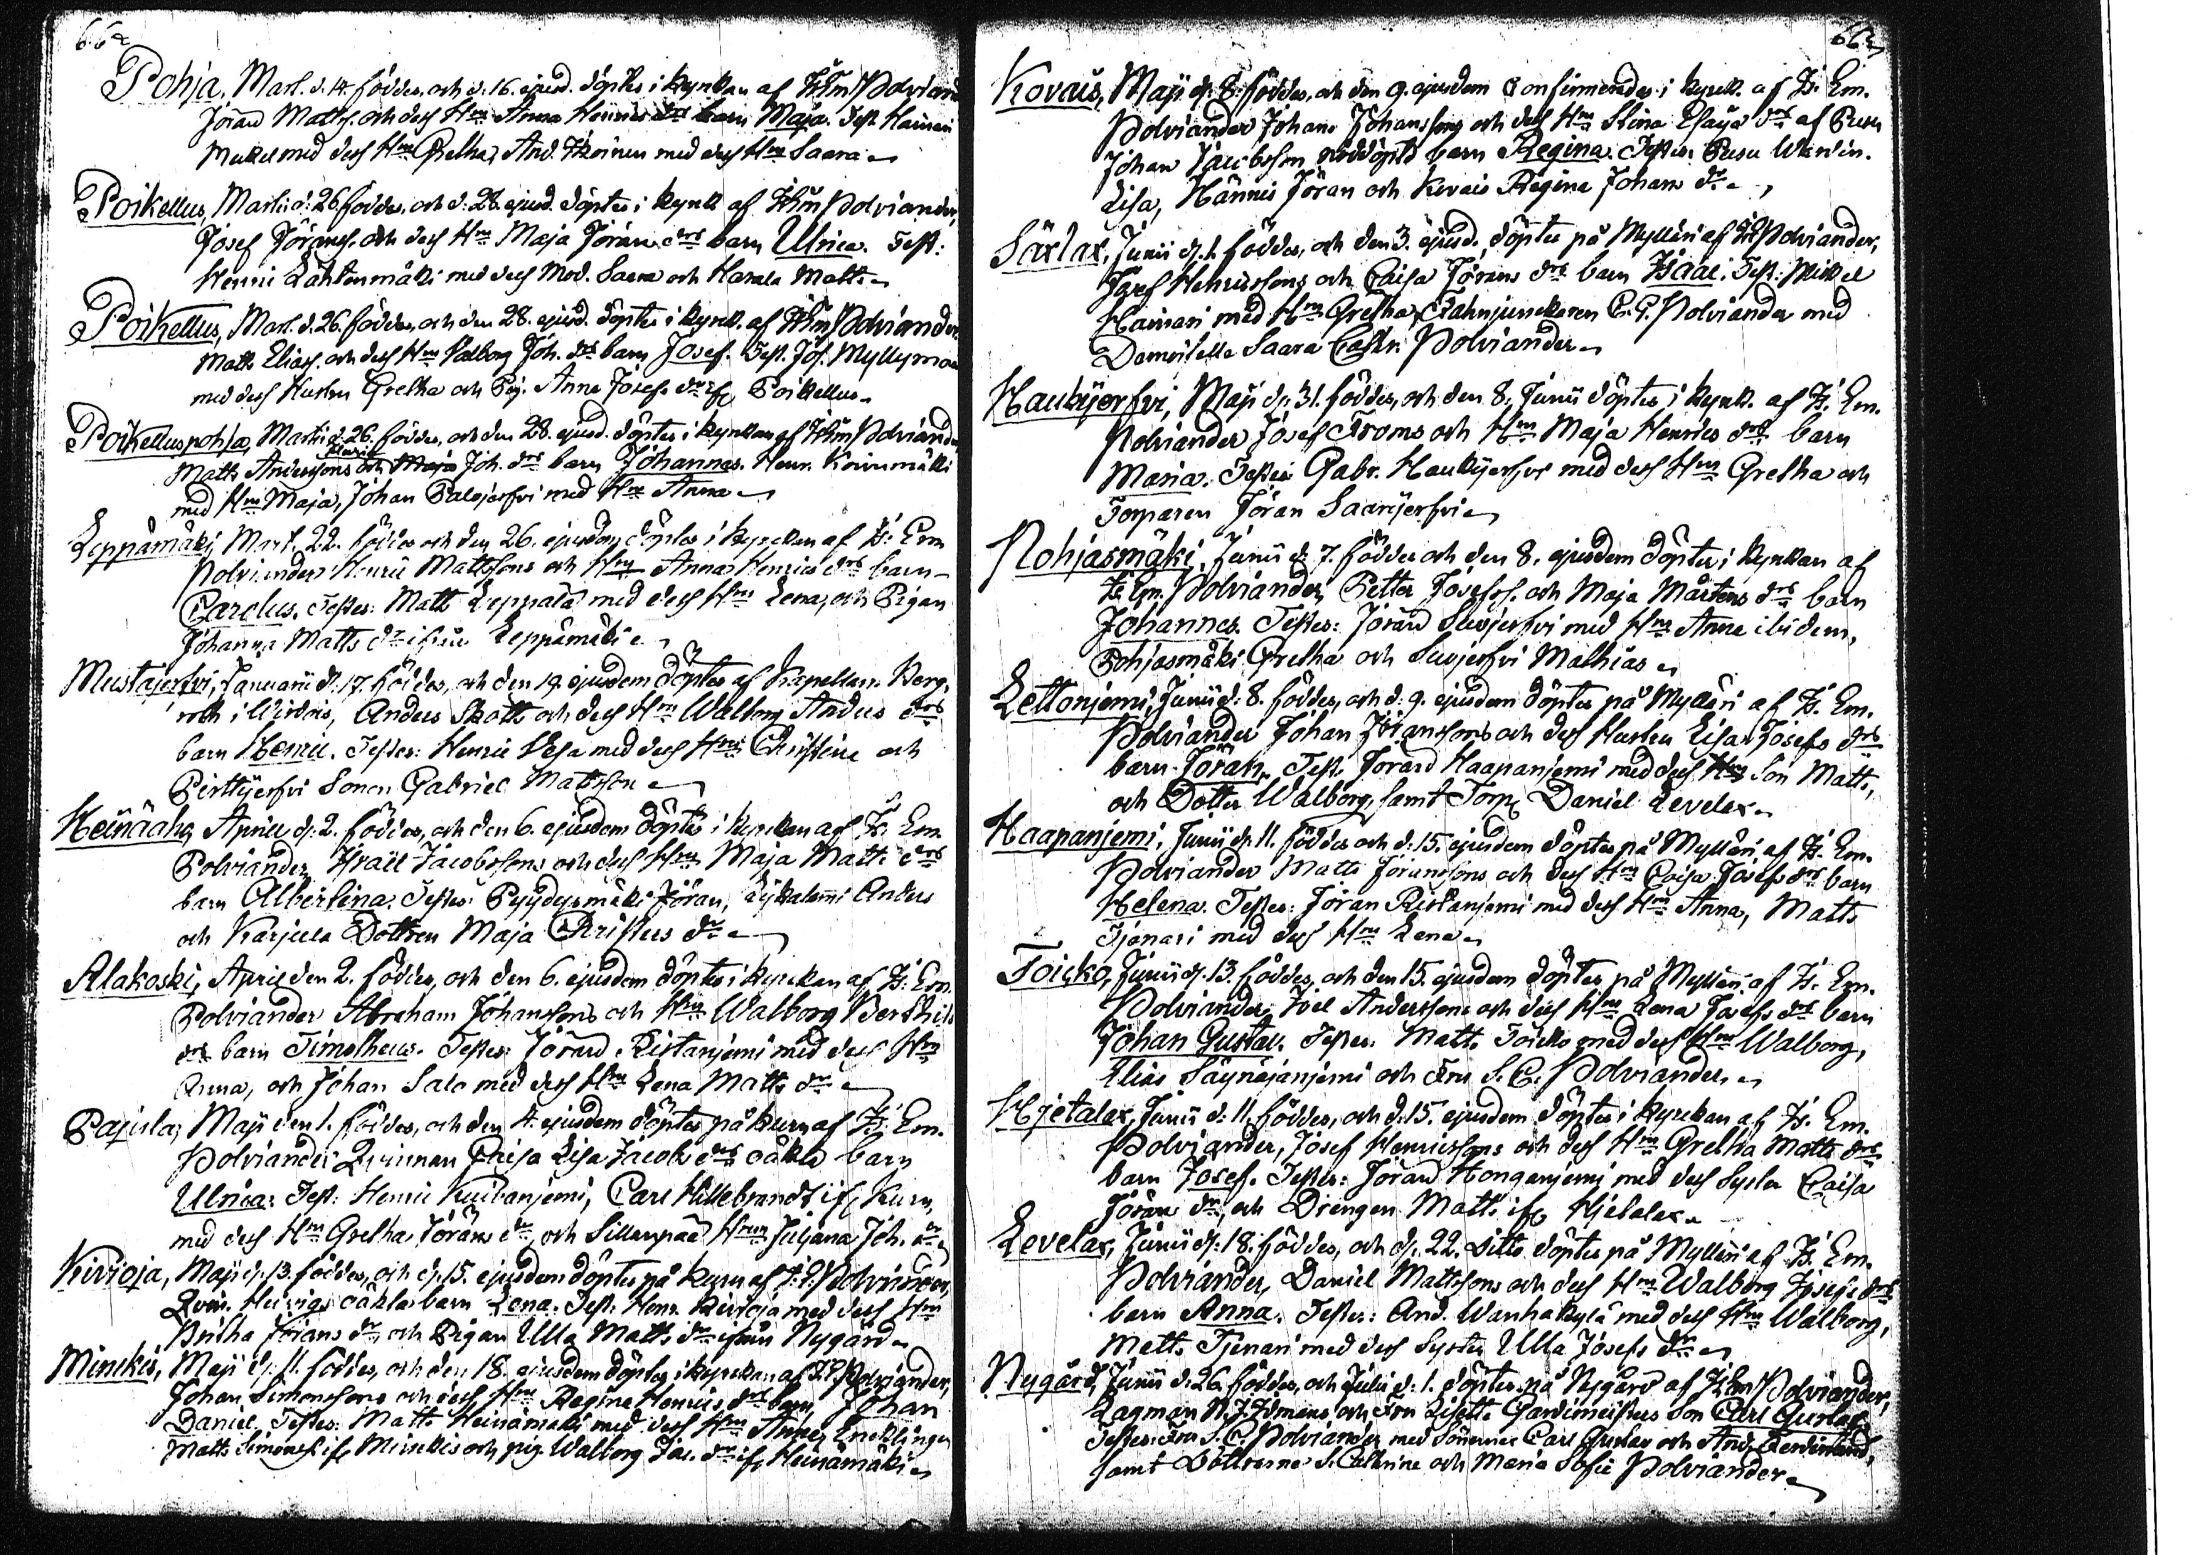 662
Pohja, Mart. d. 14. föddes, och d. 16. ejusd. döptes i kyrkan af Polviand
Jörand Matts. och dess Hru Anna Henrics drs barn Maja. Test. Hainari
Mickel med dess Hru Gretha, And. med dess Hru Saara
Poikellus, Martii d: 26 föddes, och d: 28. ejusd. döptes i kyrk af Polviander,
Josef Jöranss. och dess Hru Maja Jörans drs barn Ulrica. Test:
Henric Lahtenmäki med dess Mod. Saara och Harala Matts
Poikellus, Mart. d. 26. föddes, och den 28. ejusd. döptes i kyrk. af Polviander
Matts Eliass. och dess Hru Valborg Joh. drs barn Josef. Test. Jos. Myllymaa
med dess Hustru Gretha och Pig. Anna Josefs dr if: Poikellus
Poikelluspohja, Martii d: 26. föddes, och den 28. ejusd. döptes i kyrkan af Polviander
Matts Anderssons och Maja Joh. drs barn Johannes. Henr. Koivumäki
med Hru Maja, Johan Palojerfvi med Hru Anna
Leppämäki, Mart. 22. föddes och den 26. ejusdem döptes i kyrckan af Em
Polviander Henric Mattssons och Hru Anna Henrics drs barn
Carolus. Testes: Matts Leppälä med dess Hru Lena, och Pigan
Johanna Matts dr ifrån Leppämäki
Mustajerfvi, Januarii d: 17. föddes, och den 19. ejusdem döptes af Kapellan. Berg-
roth i Wirdois, Anders Skotts och dess Hru Walborg Anders drs
barn Henric. Testes: Henric Vesa med dess Hru Christina och
Pirttijerfvi Sonen Gabriel Mattsson
Heinäaho, Aprill d: 2. föddes, och den 6. ejusdem döptes i kyrckan af Em.
Polviander Israël Jacobssons och dess Hru Maja Matts drs
barn Albertina. Testes: Pyydysmäki Jöran, Anders
och Karjula Dottren Maja Christers dr
Alakoski, April den 2. föddes, och den 6. ejusdem döptes i kyrckan af Em.
Polviander Abraham Johanssons och Hru Walborg Berthils
drs barn Timotheus. Testes: Jörand Ristanjemi med dess Hru
Anna, och Johan Salo med dess Hru Lena Matts dr
Pajula, Maji den 1. föddes, och den 4. ejusdem döptes på Kuru af Em.
Polviander Qvinnan Caisa Lisa Jacobs drs oäkta barn
Ulrica. Test: Henric Kuibanjemi, Carl Hillebrandt if: Kuru,
med dess Hru Gretha Jörans dr, och Sillanpää Hrun Juljana Joh. dr
Kivioja, Maji d: 13. föddes, och d: 15. ejusdem döptes på Kuru af Polviander,
Qvin. Hedvigs oäkta barn Lena. Test: Henr. Kivioja med dess Hru
Britha Jörans dr, och Pigan Ulla Matts dr ifrån Nygård
Minckis, Maji d: 11. föddes, och den 18. ejusdem döptes i kyrckan af Polviander,
Johan Simonssons och dess Hru Regina Henrics drs barn Johan
Daniel. Testes: Matts Heinämäki med dess Hru Anna, Encklingen
Matts Simonss. if: Minckis och pig. Walborg Jac. dr if: Heinämäki
663
Kovais, Maji d: 8. föddes, och den 9. ejusdem Confirmerades i kyrck. af Em.
Polviander Johans Johanssons och dess Hru Stina Esaijæ drs af Pusu
Johan Jacobsson nöddöpte barn Regina. Testes: Pusu Wärdin.
Lisa, Hännis Jöran och Kovais Regina Johans dr
Särlax, Junii d: 1. föddes, och den 3. ejusd. döptes på Mylläri af Polviander,
Josef Henricssons och Caisa Jörans drs barn Isaac. Test: Mickel
Hainari med Hru Gretha, Fahnjunckaren C. G. Polviander med
Demoiselle Saara Cathr. Polviander
Haukijerfvi, Maji d: 31. föddes, och den 8. Junii döptes i kyrck. af Em.
Polviander Josef Froms och Hru Maja Henrics drs barn
Maria. Testes: Gabr. Haukijerfvi med dess Hru Gretha och
Torparen Jöran Saarijerfvi
Pohjasmäki, Junii d: 7. föddes och den 8. ejusdem döptes i kyrkan af
Em. Polviander Petter Josefss. och Maja Mårtens drs barn
Johannes. Testes: Jörand Suojerfvi med Hru Anna ibidem,
Pohjasmäki Gretha och Suojerfvi Mathias
Lettonjemi, Junii d: 8. föddes, och d: 9. ejusdem döptes på Mylläri af Em.
Polviander Johan Jöranssons och dess Hustru Lisa Josefs drs
barn Jöran. Test. Jörand Haapanjemi med dess Hru Son Matts,
och Dotter Walborg, samt Torp: Daniel Levelax
Haapanjemi, Junii d: 11. föddes och d: 15. ejusdem döptes på Mylläri af Em.
Polviander Matts Jöranssons och dess Hru Caisa Josefs drs barn
Helena. Testes: Jöran Ristanjemi med dess Hru Anna, Matts
Tjenari med dess Hru Lena
Toicko, Junii d: 13. föddes, och den 15. ejusdem döptes på Mylläri af Em.
Polviander, Joel Anderssons och dess Hru Lena Josefs drs barn
Johan Gustav. Testes: Matts Toicko med dess Hru Walborg,
Elias Säynäjänjemi och Fru S. C. Polviander
Hjetalax, Junii d: 11. föddes, och d: 15. ejusdem döptes i kyrckan af Em.
Polviander, Josef Henricssons och dess Hru Gretha Matts drs
barn Josef. Testes: Jörand Honganjemi med dess Syster Caisa
Jörans dr, och Drengen Matts if: Hjetalax
Levelax, Junii d: 18. föddes, och d: 22. ditto döptes på Mylläri af Em.
Polviander, Daniel Mattssons och dess Hru Walborg Josefs drs
barn Anna. Testes: And. Wanhakylä med dess Hru Walborg,
Matts Tjenari med dess Syster Ulla Josefs dr
Nygård, Junii d: 26. föddes, och Julii d: 1. döptes på Nygård af Em Polviander,
Lagman N. J. Idmans och Fru Lisette Gardemeisters Son Carl Gustaf
Testes: Fru S. C. Polviander med Sönerne Carl Gustav och And. Ferdinand,
samt Döttrarne S. Cathrina och Maria Sofia Polviander